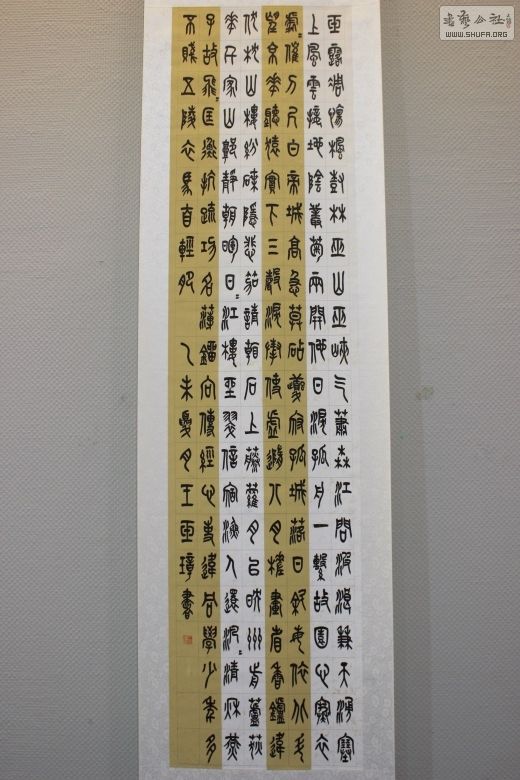 玉露凋傷楓樹林巫山巫峽气蕭森江間波浪兼天湧塞
上風雲接地陰叢菊兩開他日淚孤舟一繫故園心寒衣
處〻催刀尺白帝城高急暮砧夔府孤城落日斜每依北斗
望京華聽猿實下三聲淚奉使虛隨八月槎畫省香爐違
伏枕山樓粉堞隱悲笳請看石上藤蘿月已映洲前蘆荻
花千家山郭靜朝暉日〻江樓坐翠微信宿漁人還汎〻清秋燕
子故飛〻匡衡抗疏功名薄劉向傳經心事違同學少年多
不賤五陵衣馬自輕肥 乙未夏月王亞璋書
書法公社
WWW.SHUFA.ORG